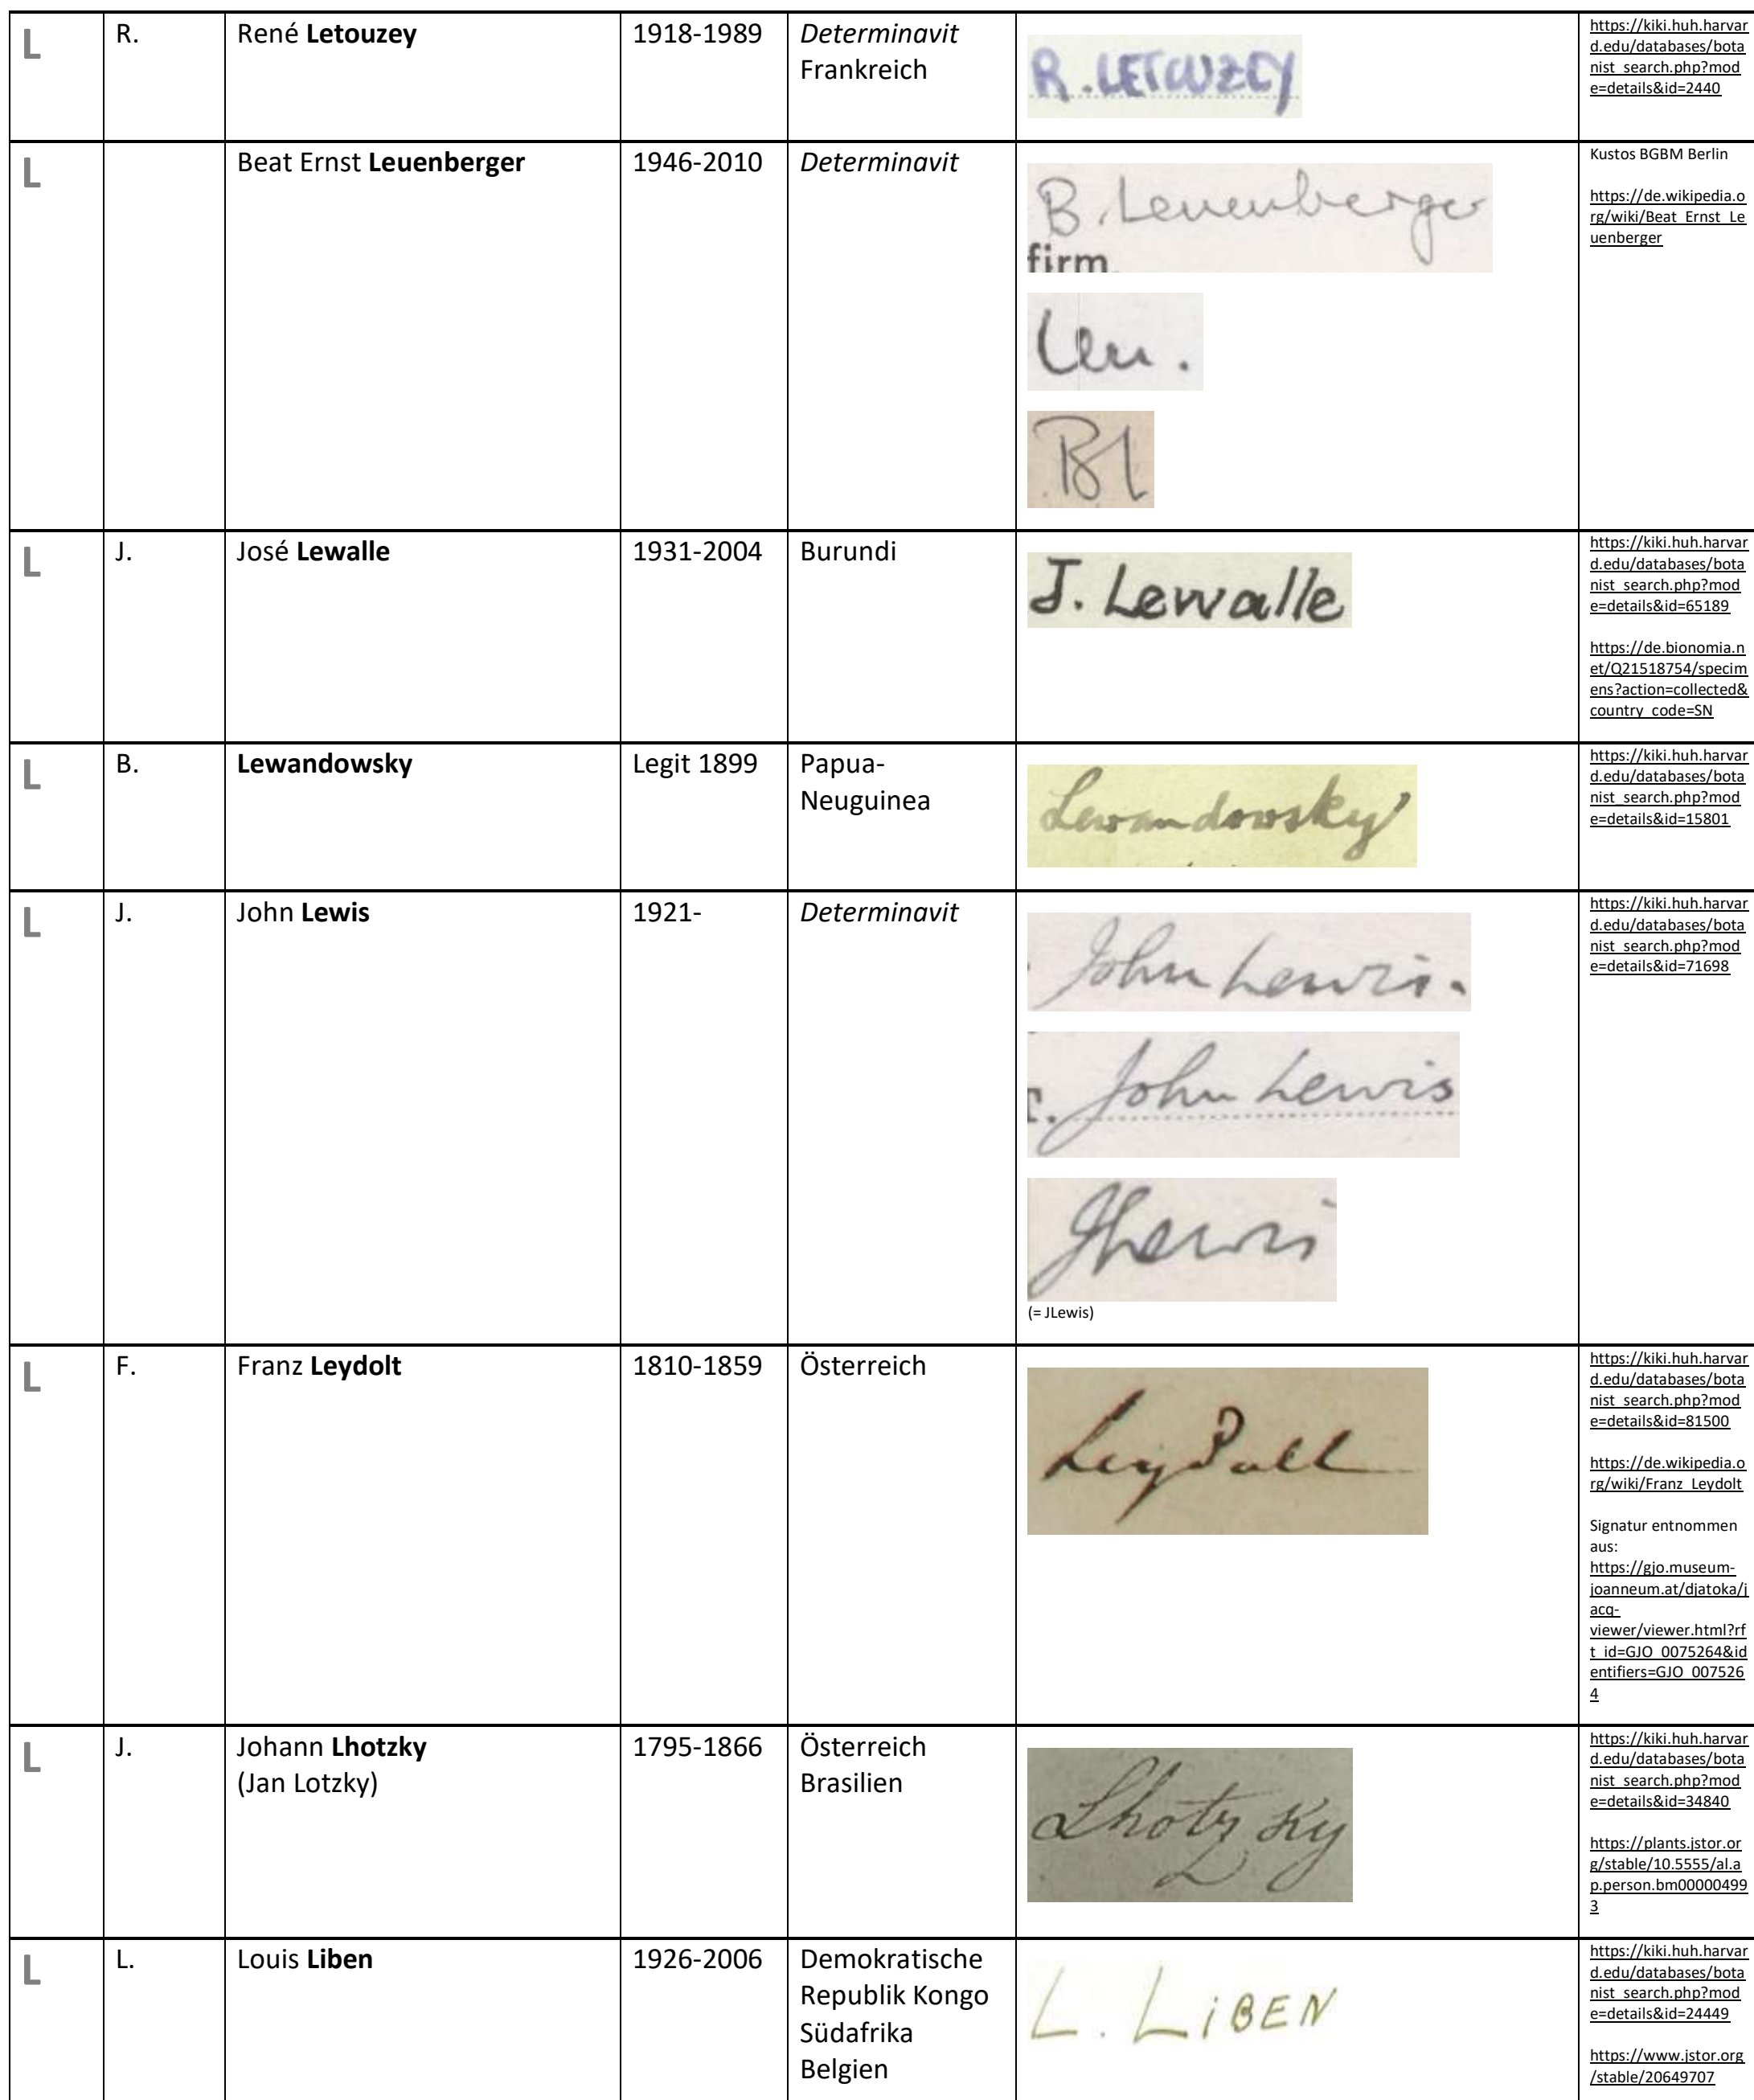 L R. René Letouzey 1918-1989 Determinavit https://kiki.huh.harvar
Frankreich d.edu/databases/bota
nist_search.php?mod
e=details&id=2440
R. LETOUZEY
L Beat Ernst Leuenberger 1946-2010 Determinavit Kustos BGBM Berlin
B. Leuenberger
firm.
Leu.
BL
https://de.wikipedia.o
rg/wiki/Beat_Ernst_Le
uenberger
L J. José Lewalle 1931-2004 Burundi
J. Lewalle
https://kiki.huh.harvar
d.edu/databases/bota
nist_search.php?mod
e=details&id=65189
https://de.bionomia.n
et/Q21518754/specim
ens?action=collected&
country_code=SN
L B. Lewandowsky Legit 1899 Papua-
Neuguinea
Lewandowsky
https://kiki.huh.harvar
d.edu/databases/bota
nist_search.php?mod
e=details&id=15801
L J. John Lewis 1921- Determinavit
John Lewis.
John Lewis
JLewis
(= JLewis)
https://kiki.huh.harvar
d.edu/databases/bota
nist_search.php?mod
e=details&id=71698
L F. Franz Leydolt 1810-1859 Österreich
Leydolt
https://kiki.huh.harvar
d.edu/databases/bota
nist_search.php?mod
e=details&id=81500
https://de.wikipedia.o
rg/wiki/Franz_Leydolt
Signatur entnommen
aus:
https://gjo.museum-
joanneum.at/djatoka/j
acq-
viewer/viewer.html?rf
t_id=GJO_0075264&id
entifiers=GJO_007526
4
L J. Johann Lhotzky 1795-1866 Österreich
(Jan Lotzky) Brasilien
Lhotzky
https://kiki.huh.harvar
d.edu/databases/bota
nist_search.php?mod
e=details&id=34840
https://plants.jstor.or
g/stable/10.5555/al.a
p.person.bm00000499
3
L L. Louis Liben 1926-2006 Demokratische
Republik Kongo
Südafrika
Belgien
L. LiBEN
https://kiki.huh.harvar
d.edu/databases/bota
nist_search.php?mod
e=details&id=24449
https://www.jstor.org
/stable/20649707